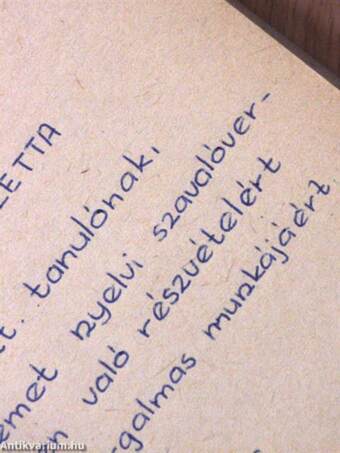 ZETTA
t. tanulónak,
emet nyelvi szavalóver-
n való részvételért
rgalmas munkájáért.
Antikvarium.hu